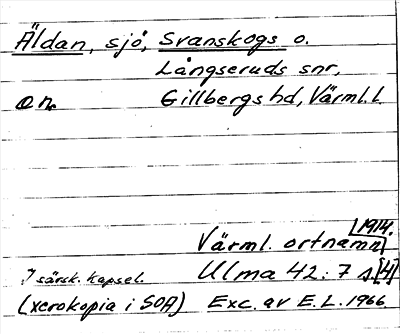 Äldan, sjö, Svanskogs o.
Långseruds snr,
on. Gillbergs hd, Värml. l.
[1914.
Värml. ortnamn]
I särsk. kapsel. Ulma 42:7 s[4]
(xerokopia i SOA) Exc. av E.L. 1966